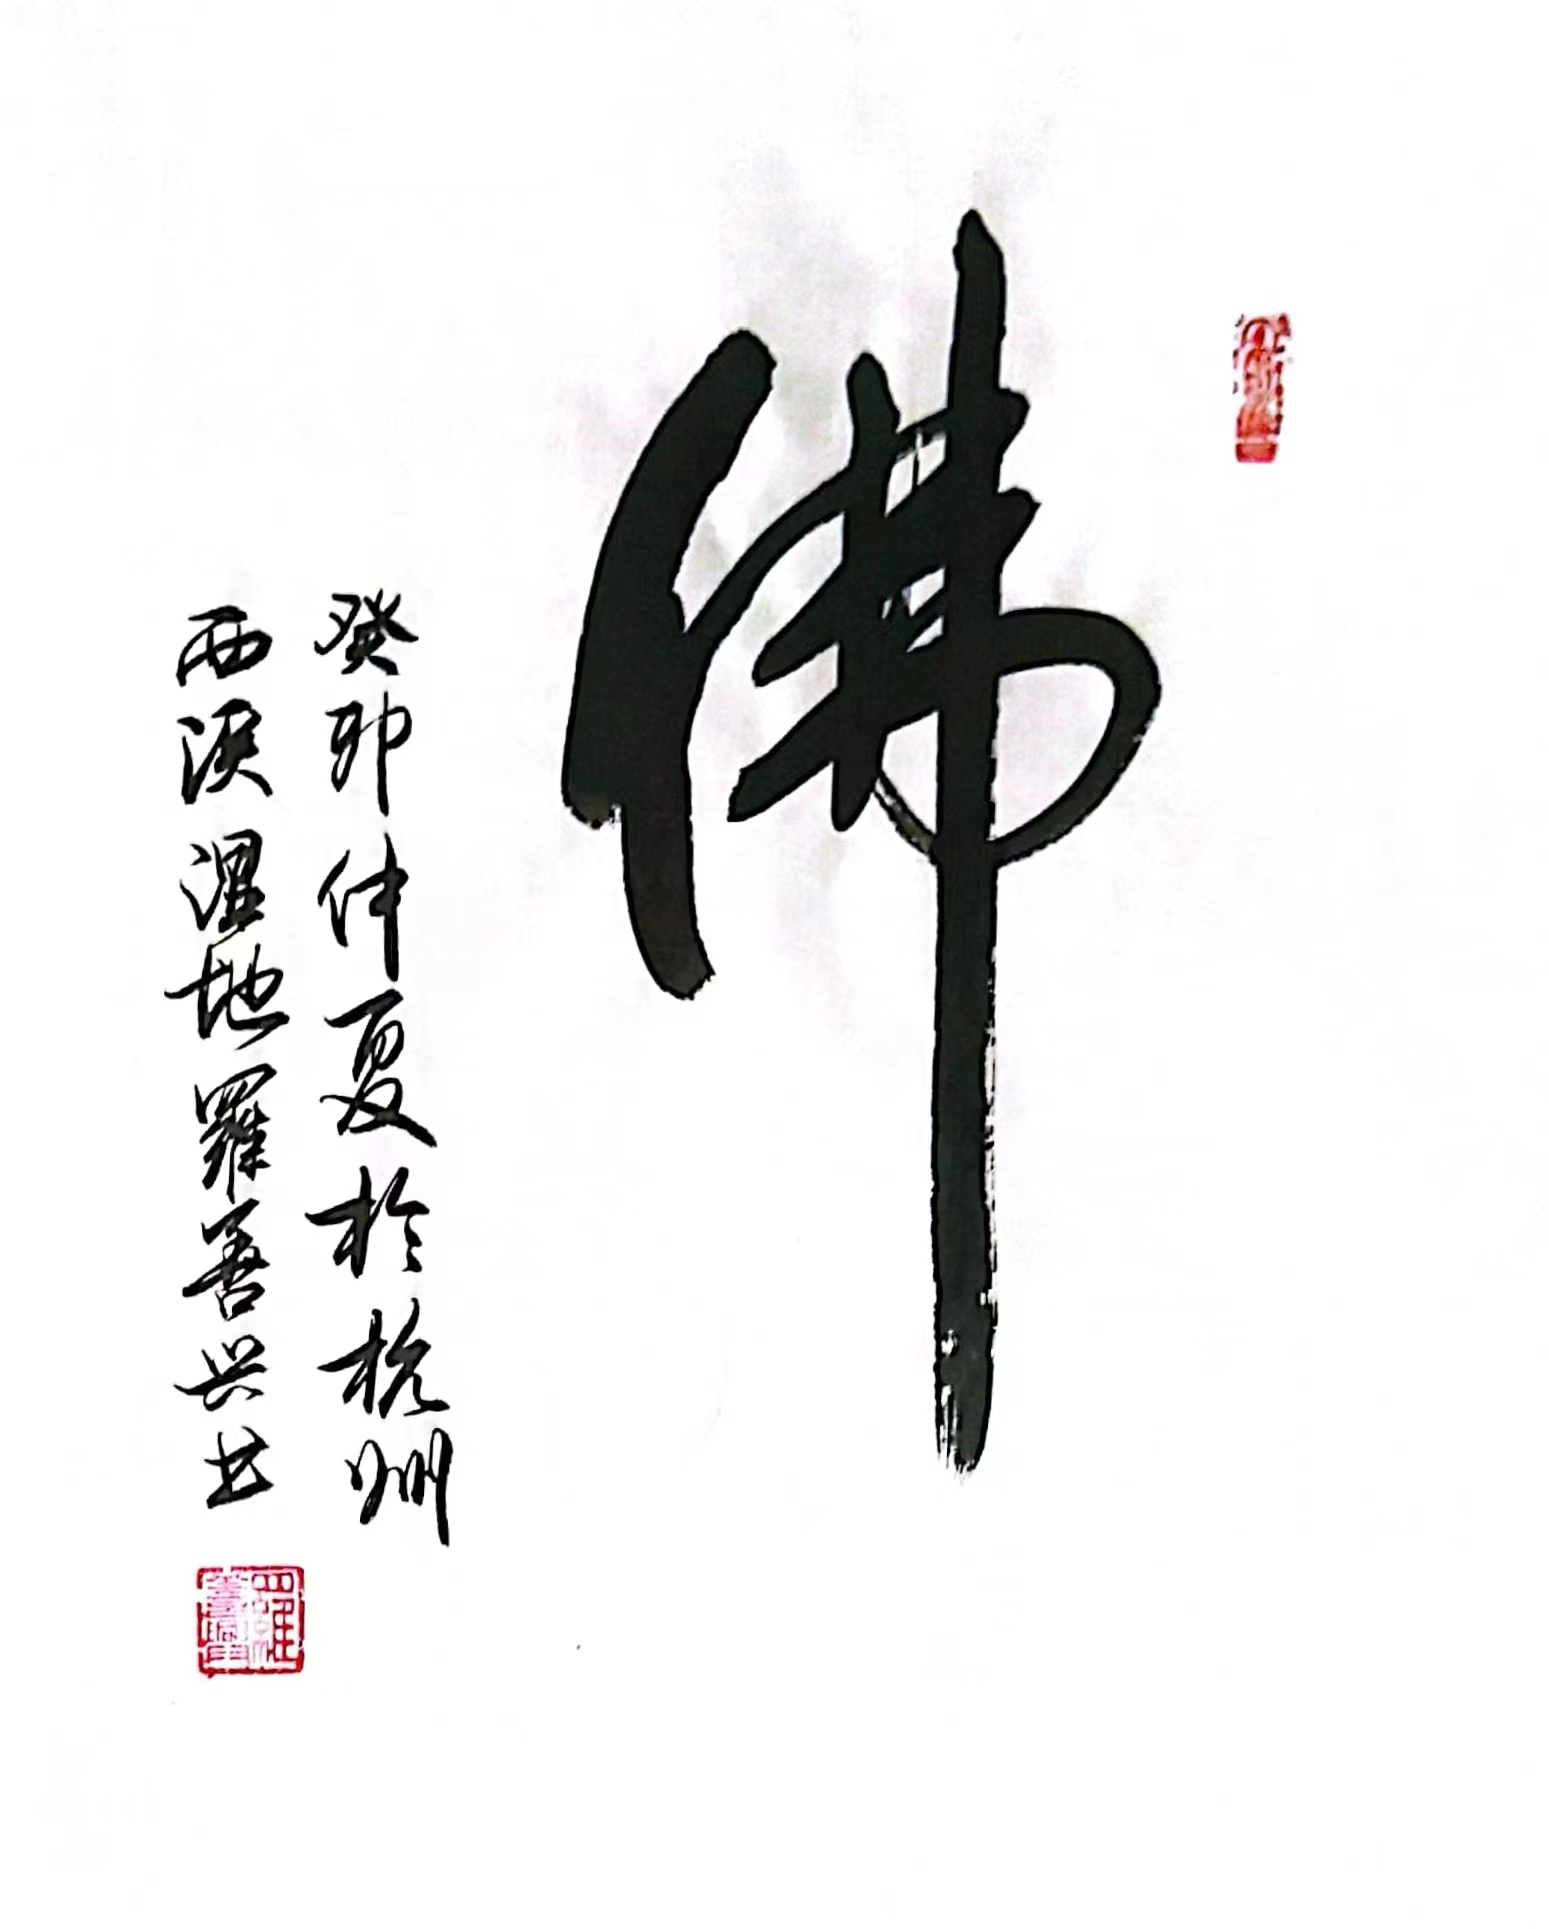 佛
癸卯仲夏於杭州
西溪湿地羅善兴书